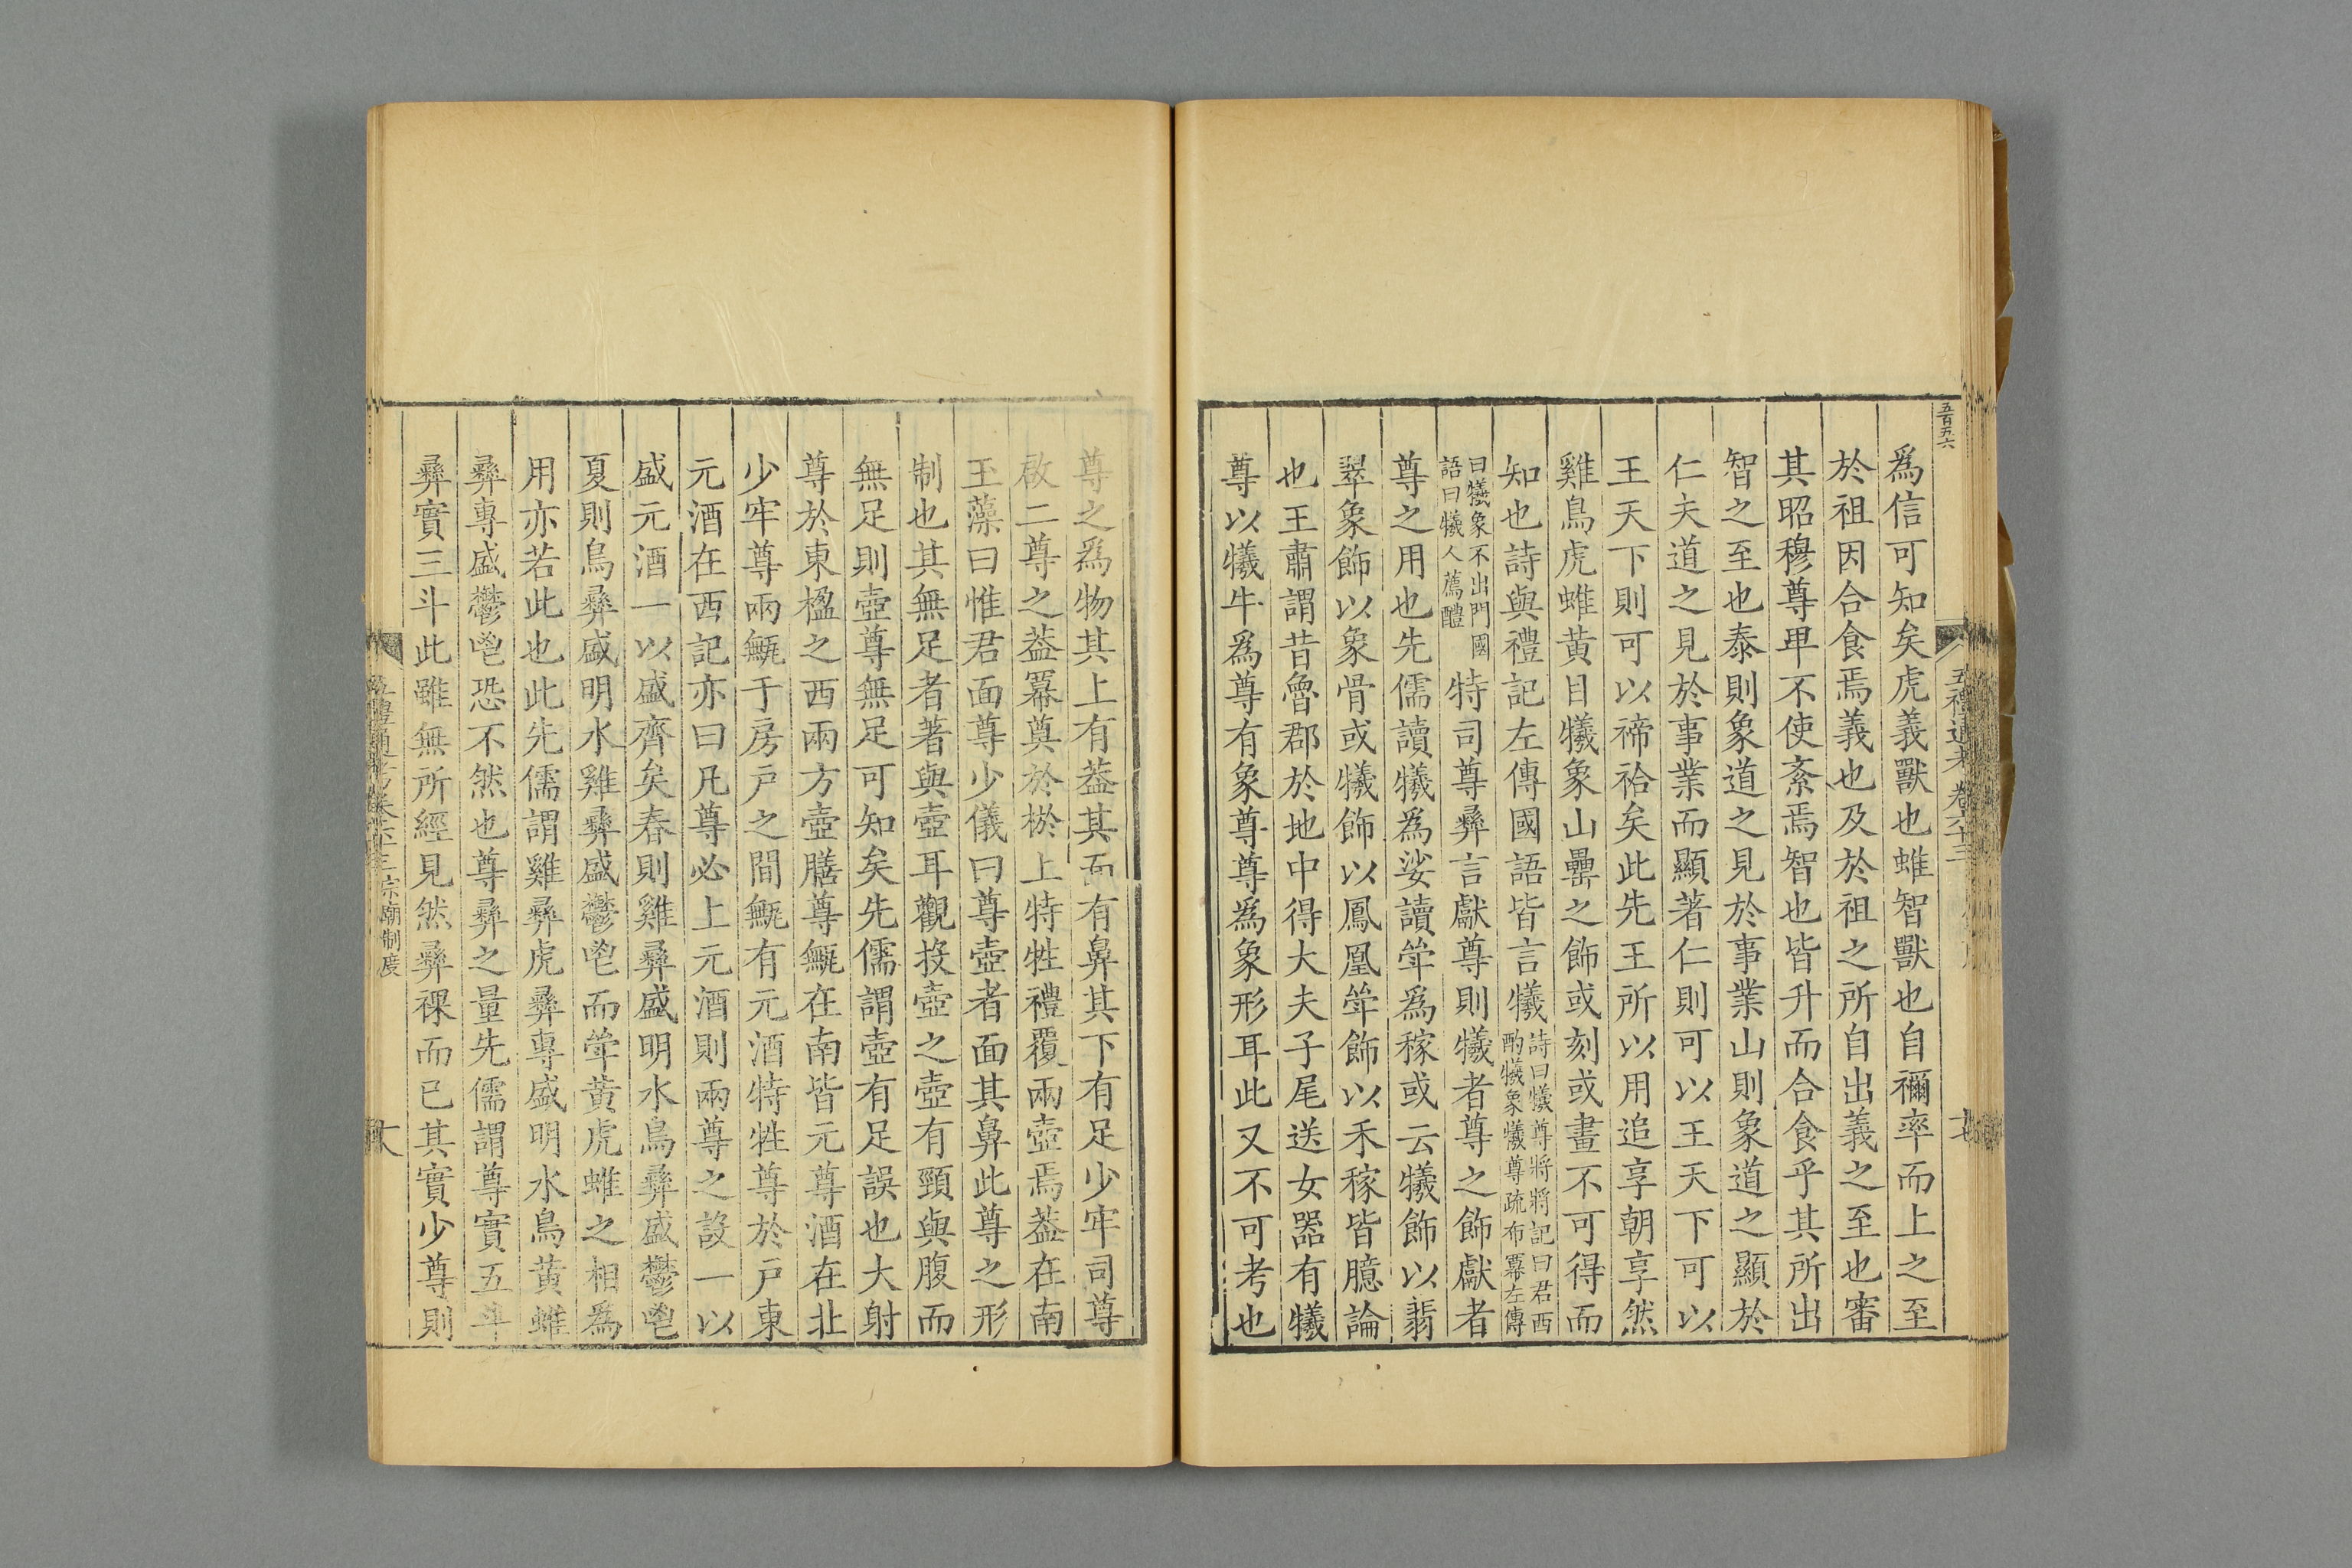 五百五六
為信可知矣虎義獸也蜼智獸也自禰率而上之至
於祖因合食焉義也及於祖之所自出義之至也審
其昭穆尊卑不使紊焉智也皆升而合食乎其所出
智之至也泰則象道之見於事業山則象道之顯於
仁夫道之見於事業而顯著仁則可以王天下可以
王天下則可以禘祫矣此先王所以用追享朝享然
雞鳥虎蜼黃目犧象山罍之飾或刻或畫不可得而
知也詩與禮記左傳國語皆言犧
詩曰犧尊將將記曰君西
酌犧象犧尊疏布冪左傳
曰犧象不出門國
語曰犧人薦醴
特司尊彝言獻尊則犧者尊之飾獻者
尊之用也先儒讀犧為娑讀斝為稼或云犧飾以翡
翠象飾以象骨或犧飾以鳳凰斝飾以禾稼皆臆論
也王肅謂昔魯郡於地中得大夫子尾送女器有犧
尊以犧牛為尊有象尊尊為象形耳此又不可考也
尊之為物其上有蓋其面有鼻其下有足少牢司尊
啟二尊之蓋冪奠於棜上特牲禮覆兩壺焉蓋在南
玉藻曰惟君面尊少儀曰尊壺者面其鼻此尊之形
制也其無足者著與壺耳觀投壺之壺有頸與腹而
無足則壺尊無足可知矣先儒謂壺有足誤也大射
尊於東楹之西兩方壺膳尊甒在南皆元尊酒在北
少牢尊兩甒于房戶之間甒有元酒特牲尊於戶東
元酒在西記亦曰凡尊必上元酒則兩尊之設一以
盛元酒一以盛齊矣春則雞彝盛明水鳥彝盛鬱鬯
夏則鳥彝盛明水雞彝盛鬱鬯而斝黃虎蜼之相為
用亦若此也此先儒謂雞彝虎彝專盛明水鳥黃蜼
彝專盛鬱鬯恐不然也尊彝之量先儒謂尊實五斗
彝實三斗此雖無所經見然彝祼而已其實少尊則
五禮通考卷六十三宗廟制度